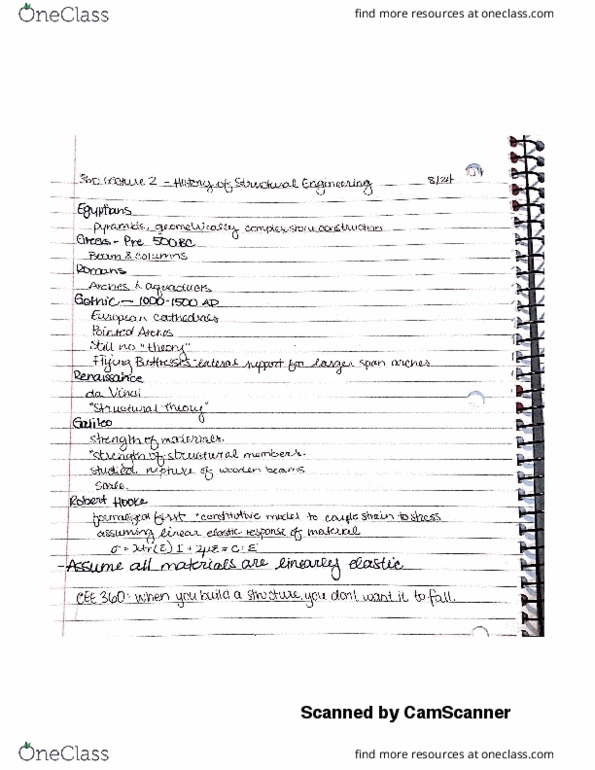 OneClass
find more resources at oneclass.com
360 Lecture 2 - History of Structural Engineering 8/24
Egyptians
pyramids, geometrically complex stone construction
Greeks - Pre 500 BC
Beam & columns
Romans
Arches & aquaducts
Gothic - 1000-1500 AD
European cathedrals
Pointed Arches
Still no "theory"
Flying Buttresses - lateral support for larger span arches
Renaissance
da Vinci
"Structural Theory"
Galileo
strength of materials.
"strength of structural members.
studied rupture of wooden beams
Scale.
Robert Hooke
formalized first "constitutive models to couple strain to stress
assuming linear elastic response of material
σ = λtr(ε) I + 2με = C : ε
- Assume all materials are linearly elastic
CEE 360: when you build a structure, you don't want it to fall.
Scanned by CamScanner
OneClass
find more resources at oneclass.com